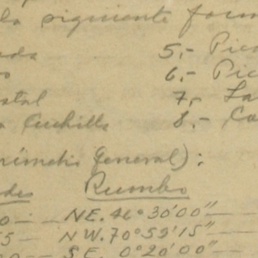 la siguiente form
5.- Pic
6.- Pic
stal 7.- La
Cuchilla 8.- Ca
General):
des Rumbo
NE. 41°30'00"
NW. 70°59'15"
SE. 0°20'00"